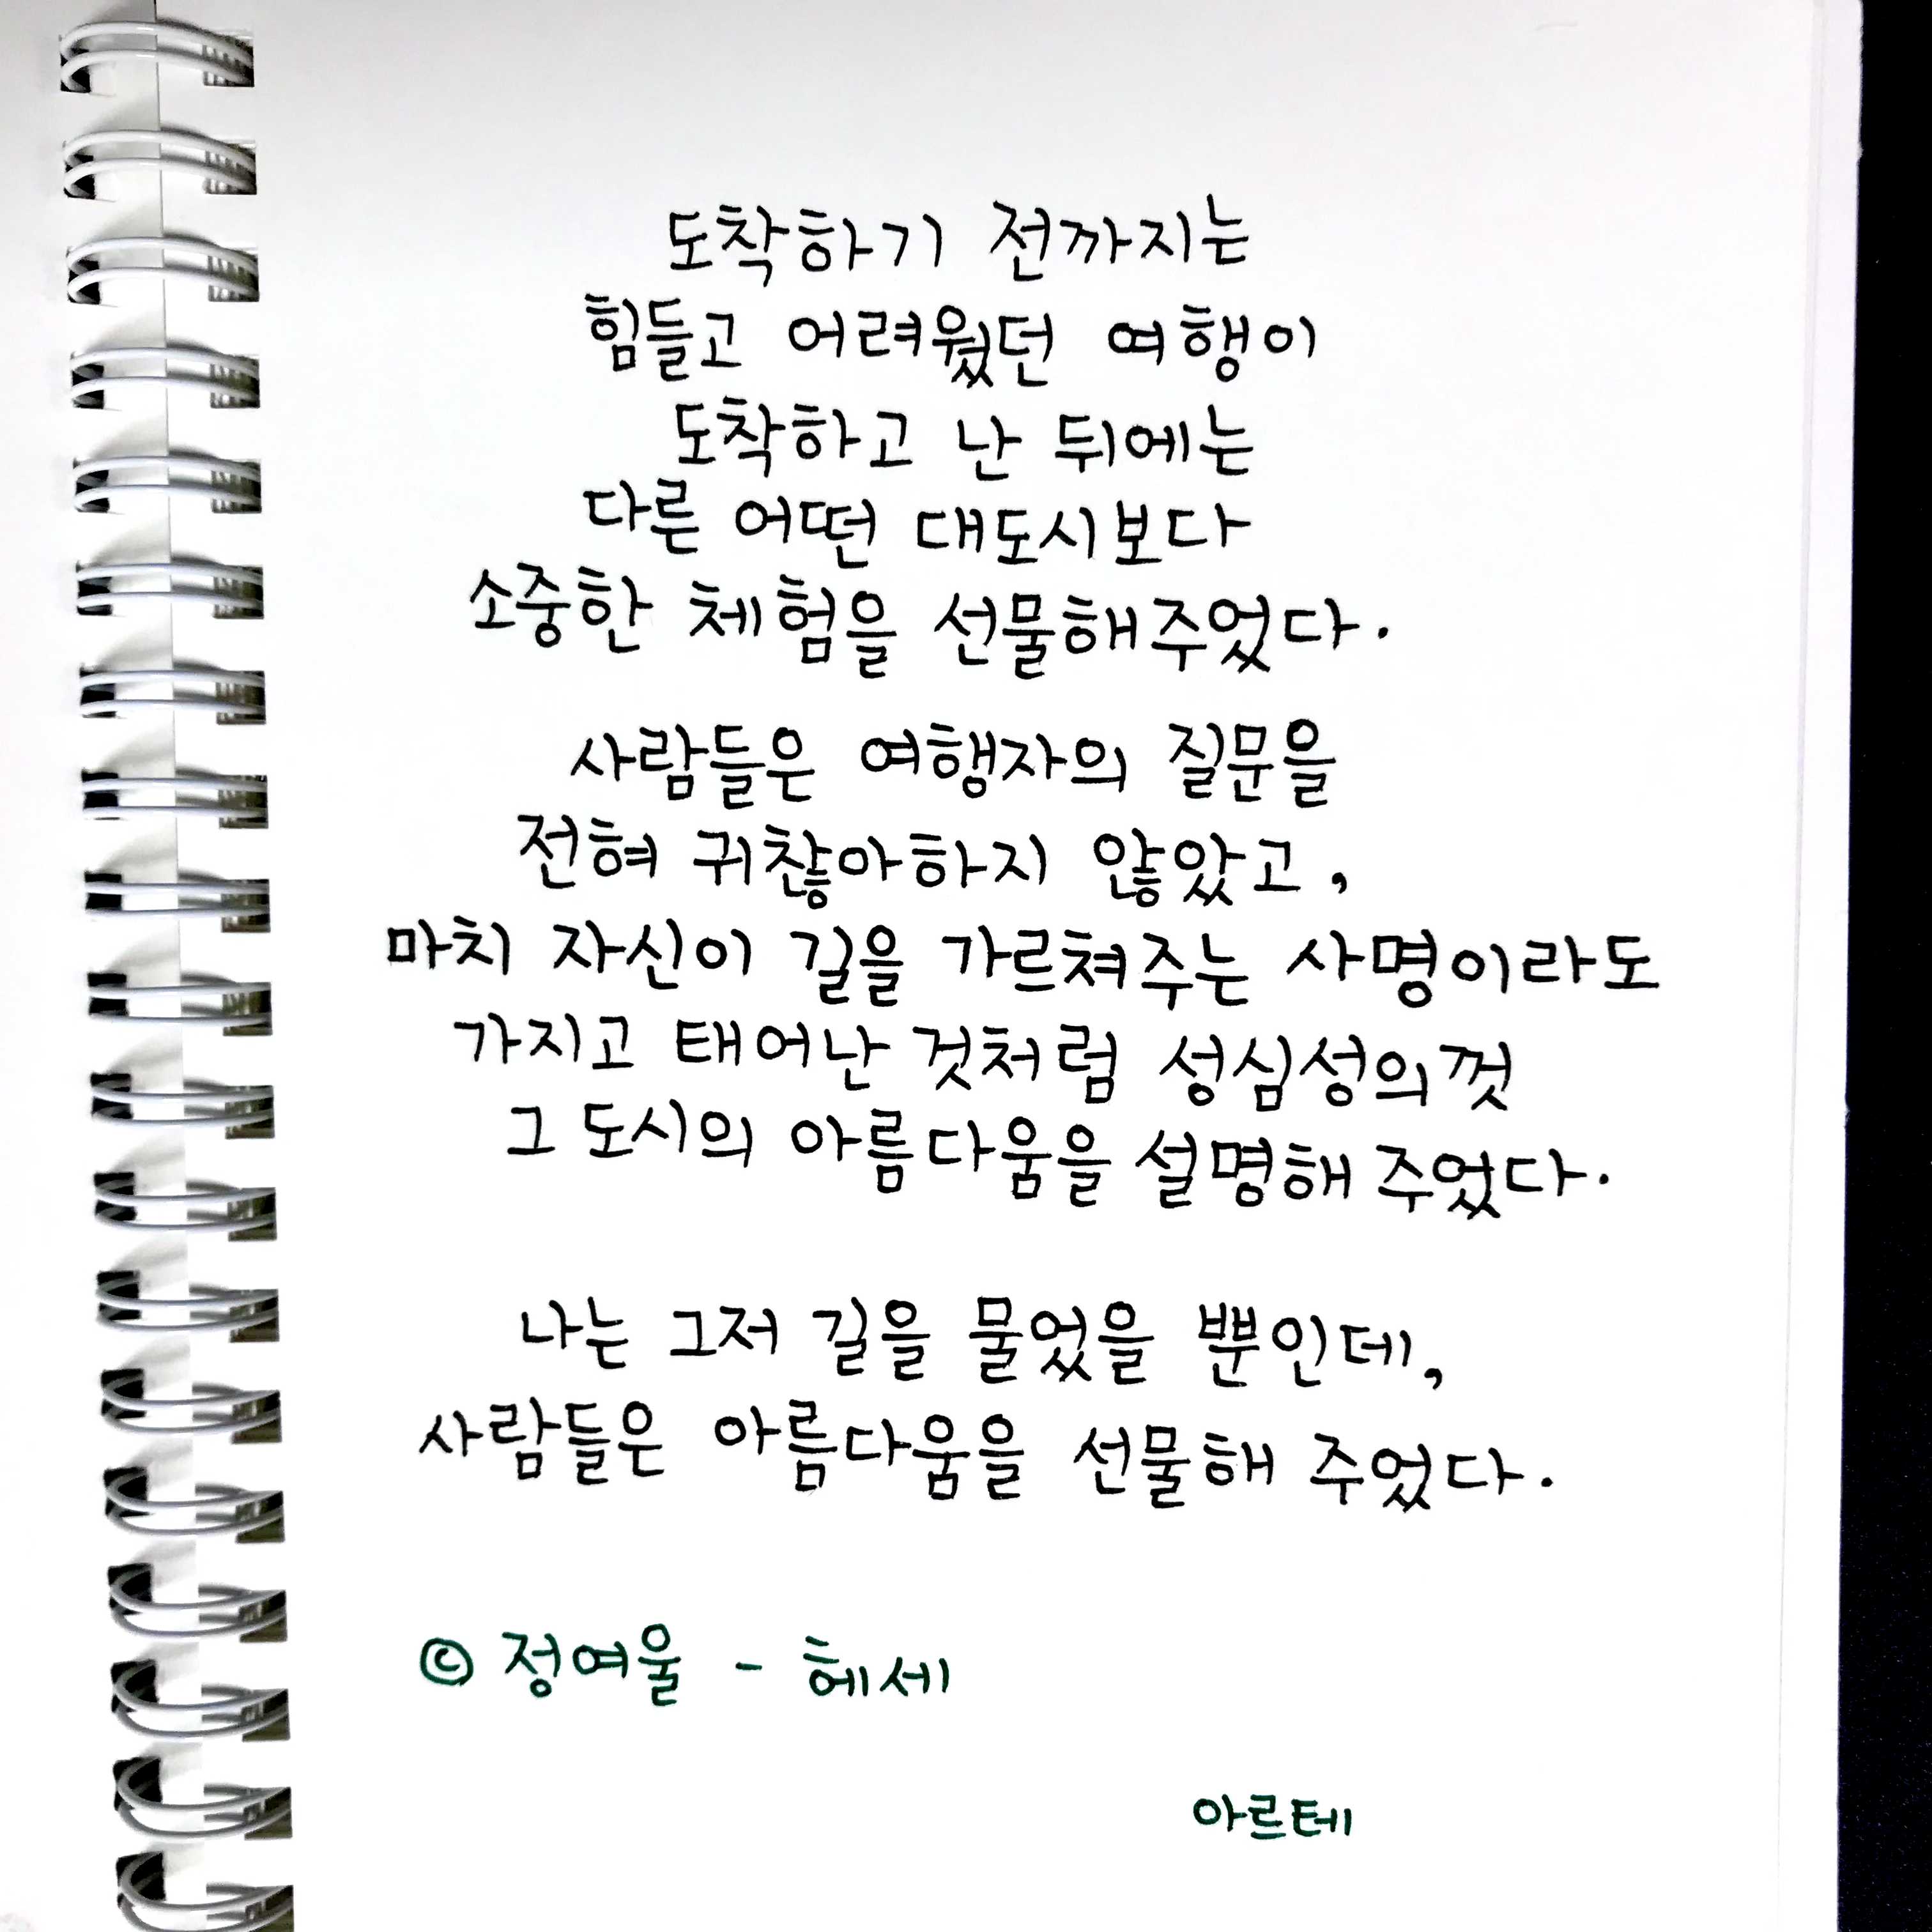 도착하기 전까지는
힘들고 어려웠던 여행이
도착하고 난 뒤에는
다른 어떤 대도시보다
소중한 체험을 선물해주었다.
사람들은 여행자의 질문을
전혀 귀찮아하지 않았고,
마치 자신이 길을 가르쳐주는 사명이라도
가지고 태어난 것처럼 성심성의껏
그 도시의 아름다움을 설명해 주었다.
나는 그저 길을 물었을 뿐인데,
사람들은 아름다움을 선물해 주었다.
© 정여울 - 헤세
아르테